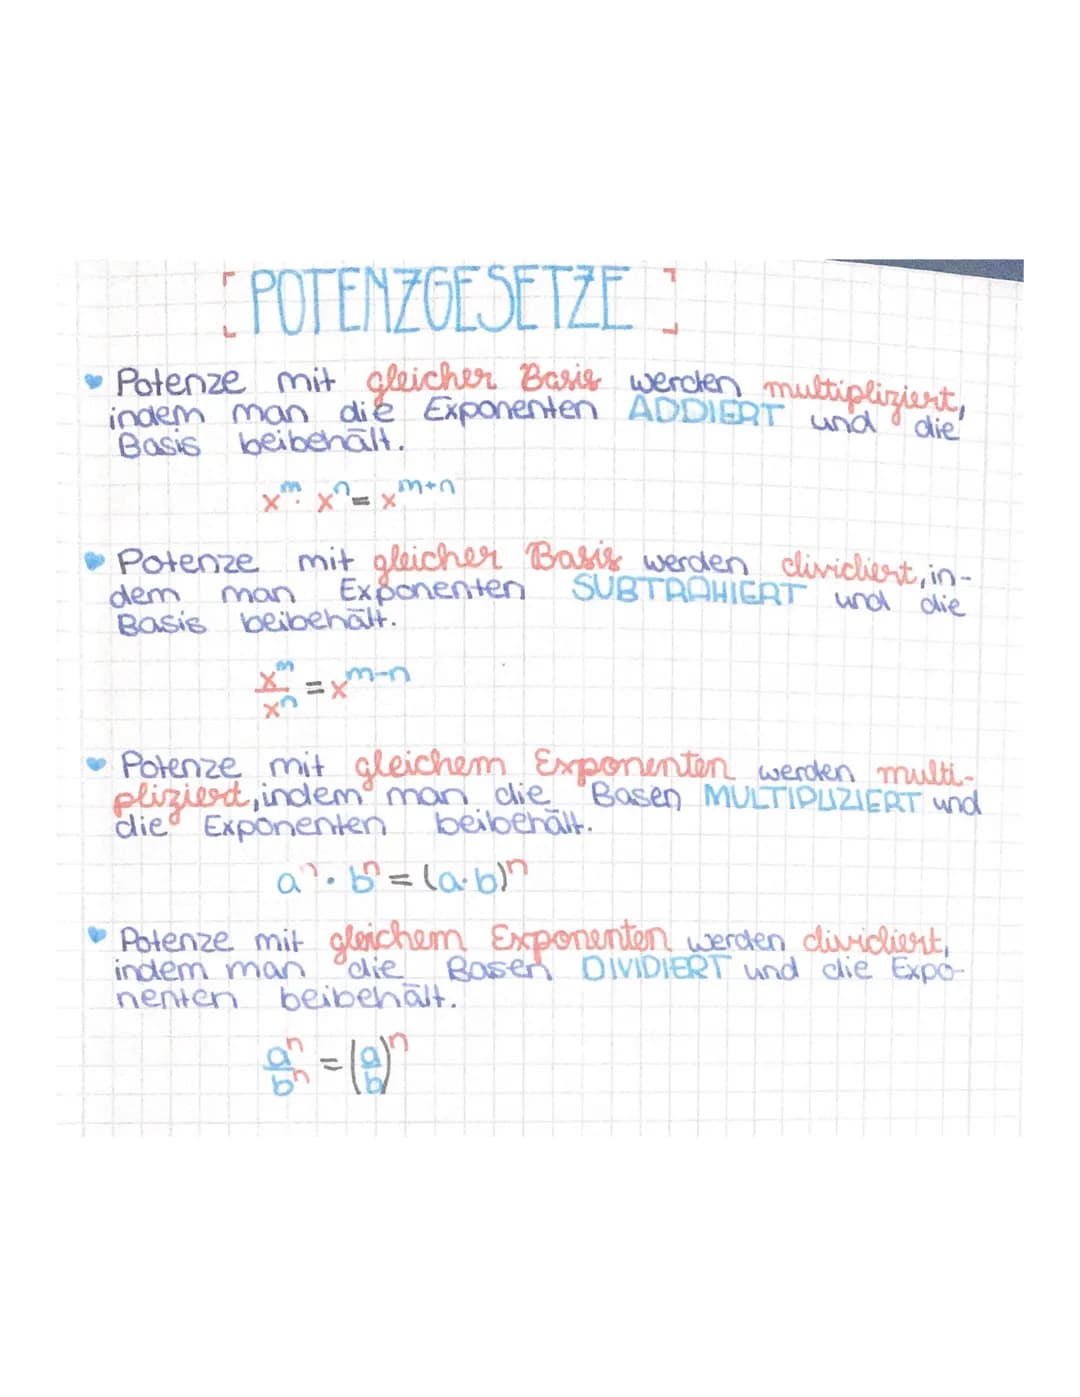 [ POTENZGESETZE ]
Potenze mit gleicher Basis werden multipliziert,
indem man die Exponenten ADDIERT und die
Basis beibehält.
x^m · x^n = x^{m+n}
Potenze mit gleicher Basis werden dividiert, in-
dem man Exponenten SUBTRAHIERT und die
Basis beibehält.
x^m / x^n = x^{m-n}
Potenze mit gleichem Exponenten werden multi-
pliziert, indem man die Basen MULTIPLIZIERT und
die Exponenten beibehält.
a^n · b^n = (a·b)^n
Potenze mit gleichem Exponenten werden dividiert,
indem man die Basen DIVIDIERT und die Expo-
nenten beibehält.
a^n / b^n = (a/b)^n